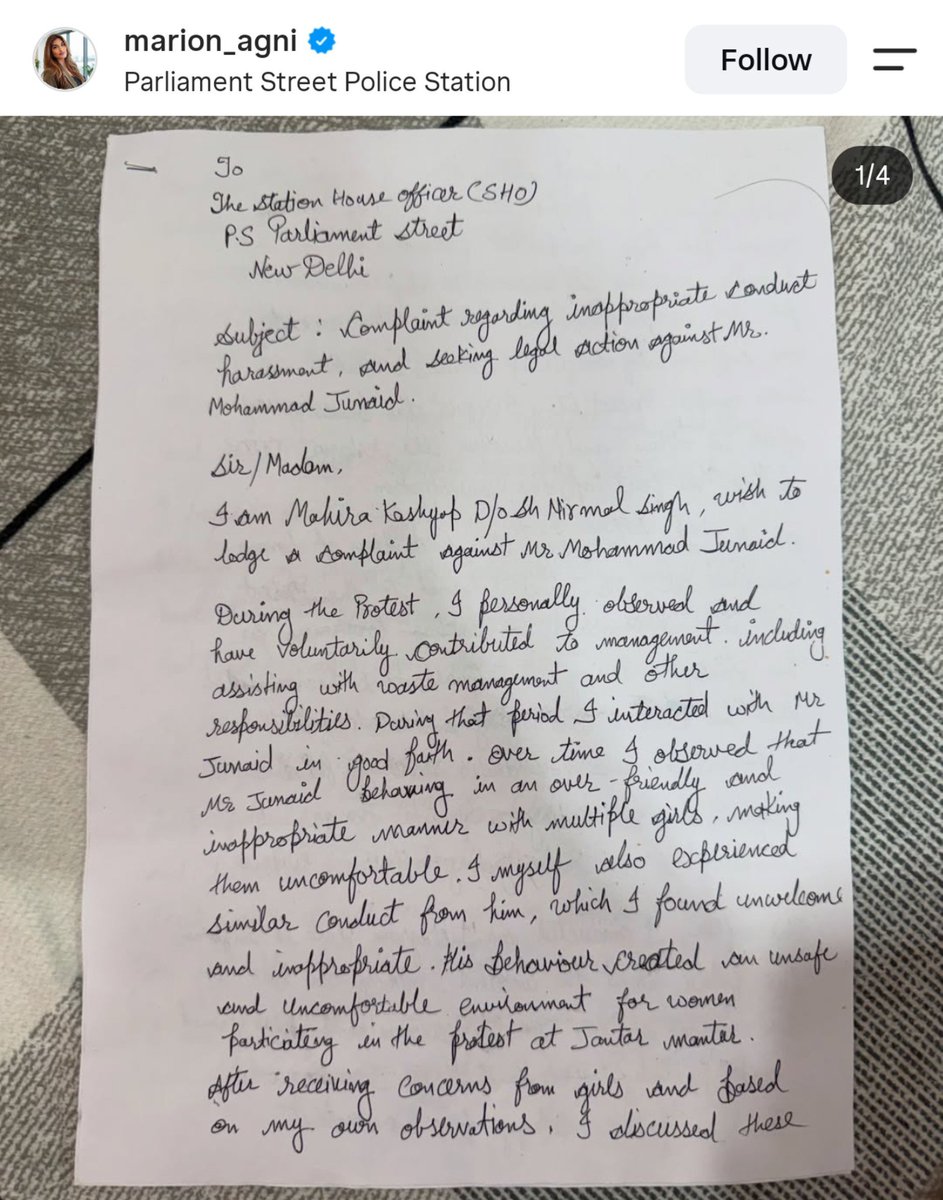 marion_agni
Parliament Street Police Station
Follow
1/4
To
The Station House officer (SHO)
P.S Parliament street
New Delhi
Subject : Complaint regarding inappropriate conduct
harassment, and seeking legal action against Mr.
Mohammad Junaid.
Sir/Madam,
I am Mahira Kashyap D/o Sh Nirmal Singh, wish to
lodge a complaint against Mr Mohammad Junaid.
During the Protest, I personally observed and
have voluntarily contributed to management. including
assisting with waste management and other
responsibilities. During that period I interacted with Mr
Junaid in good faith. over time I observed that
Mr Junaid behaving in an over-friendly and
inappropriate manner with multiple girls, making
them uncomfortable. I myself also experienced
similar conduct from him, which I found unwelcome
and inappropriate. His behaviour created an unsafe
and uncomfortable environment for women
particiating in the protest at Jantar mantar.
After receiving concerns from girls and based
on my own observations, I discussed these